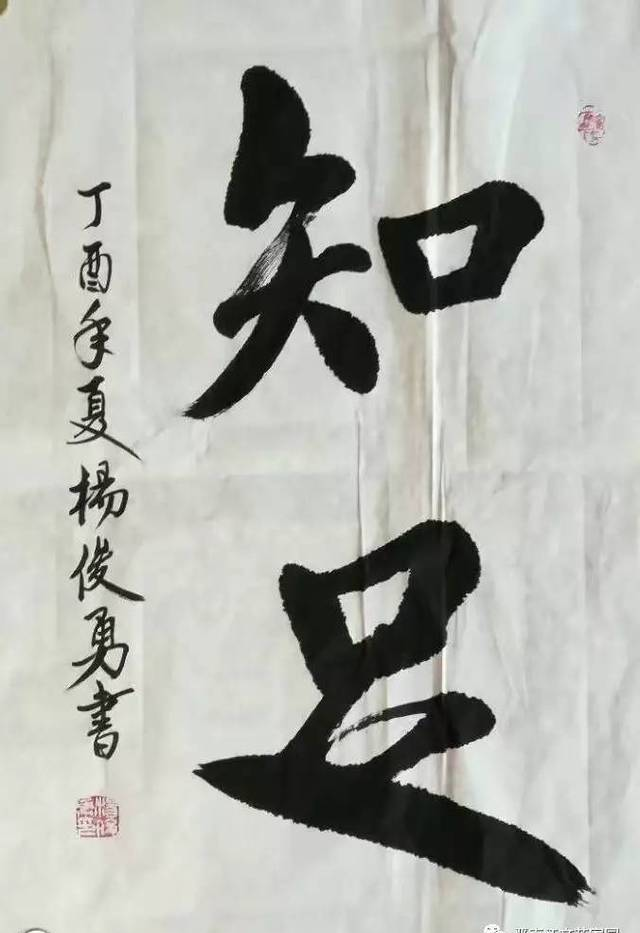 知足
丁酉年夏楊俊勇書